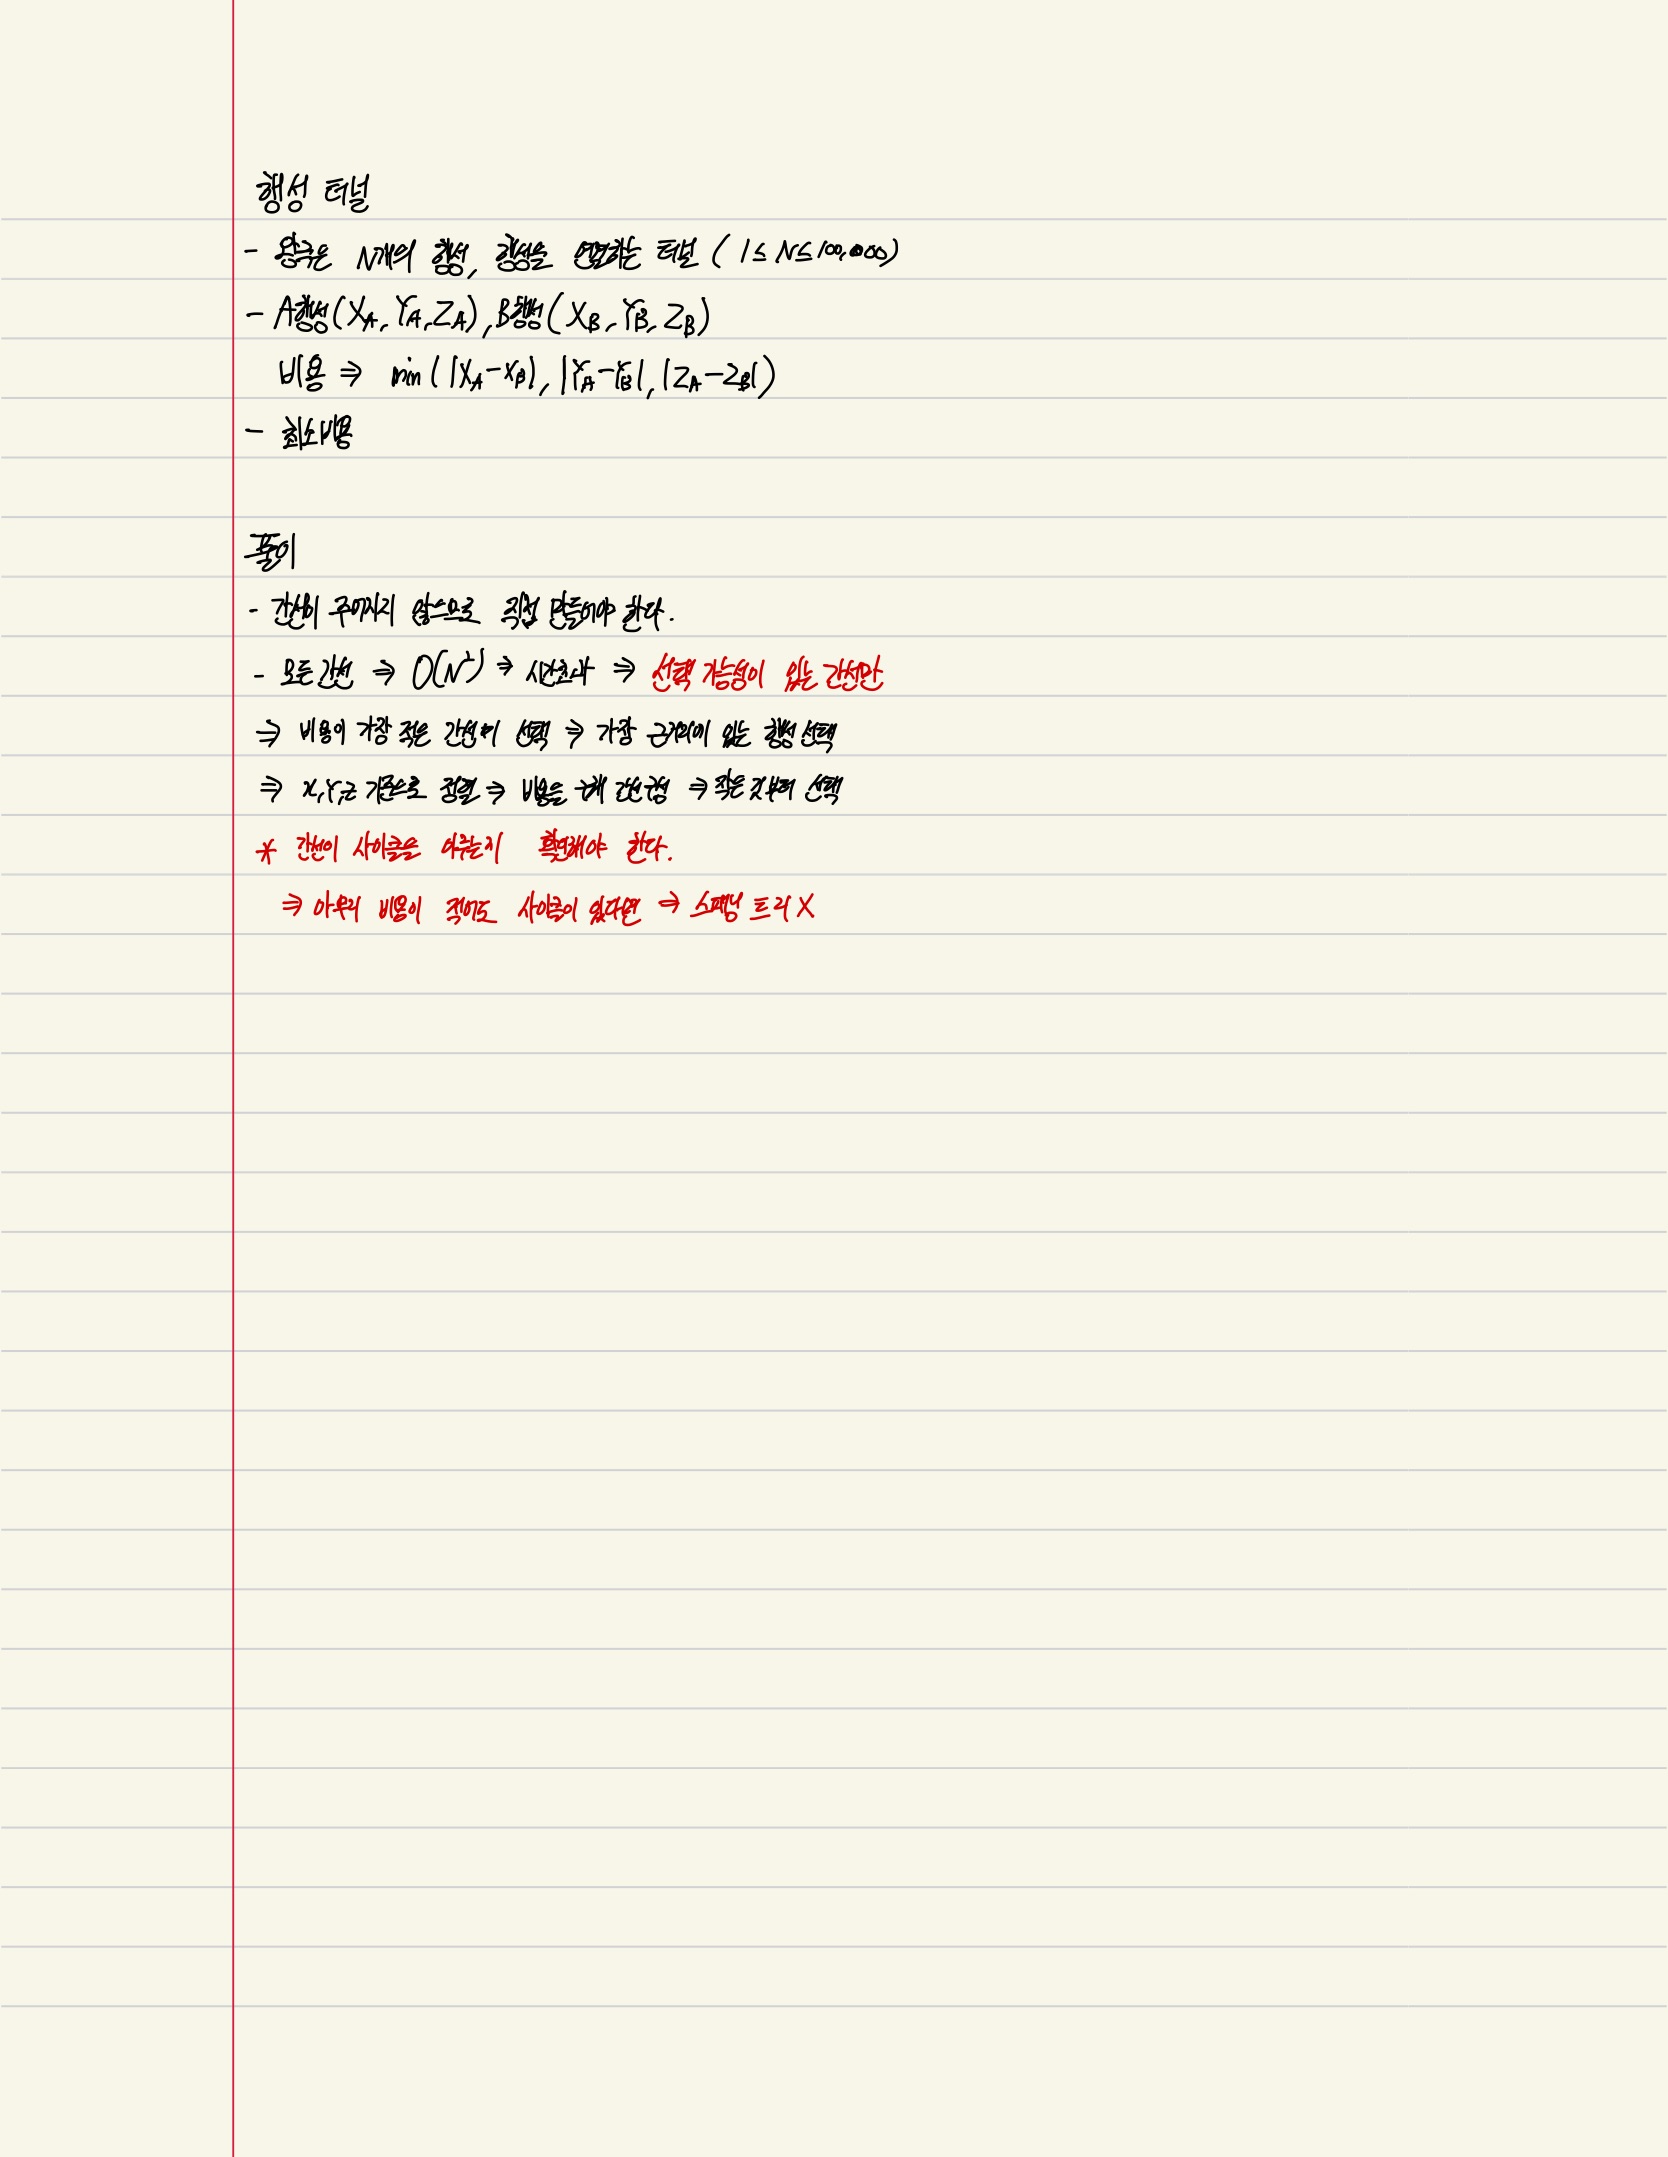 행성 터널
- 왕국은 N개의 행성, 행성을 연결하는 터널 ( 1 ≤ N ≤ 100,000)
- A행성(X_A, Y_A, Z_A), B행성(X_B, Y_B, Z_B)
비용 ⇒ min(|X_A-X_B|, |Y_A-Y_B|, |Z_A-Z_B|)
- 최소비용
풀이
- 간선이 주어지지 않으므로 직접 만들어야 한다.
- 모든 간선 ⇒ O(N²) ⇒ 시간초과 ⇒ 선택 가능성이 있는 간선만
⇒ 비용이 가장 적은 간선 선택 ⇒ 가장 근거리에 있는 행성 선택
⇒ x, Y, z 기준으로 정렬 ⇒ 비용을 구해 간선 ⇒ 작은 것부터 선택
* 간선이 사이클을 이루는지 확인해야 한다.
⇒ 아무리 비용이 적어도 사이클이 있다면 ⇒ 스패닝 트리 X